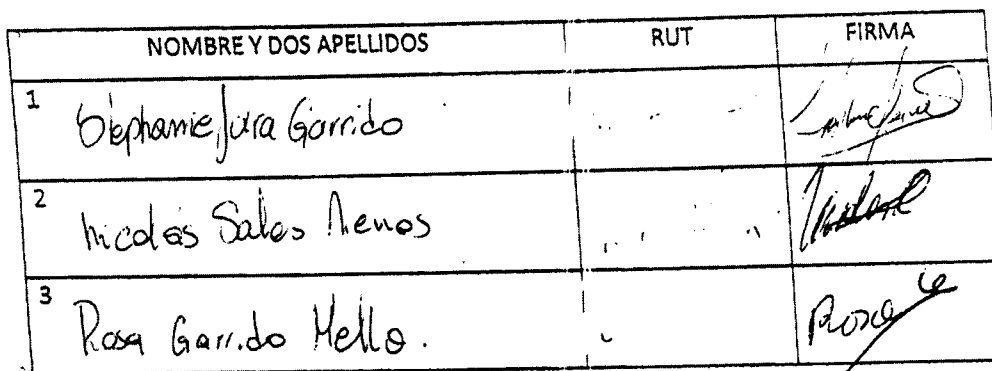 NOMBRE Y DOS APELLIDOS RUT FIRMA
1 Stephanie Jara Garrido
2 Nicolás Salas
3 Rosa Garrido Mella. Rosa